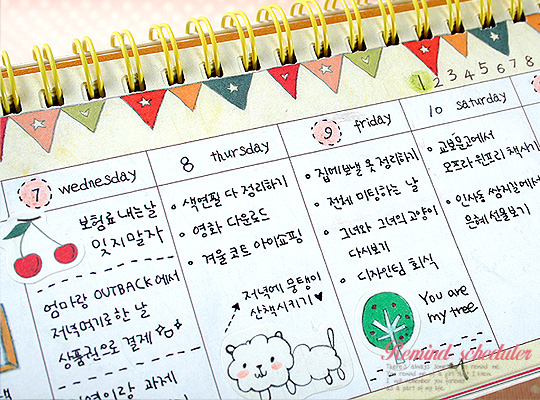 1 2 3 4 5 6 7 8
7 wednesday
보험료 내는날
잊지말자
엄마랑 OUTBACK에서
저녁먹기로한 날
상품권으로 결제
과제
8 thursday
색연필 다 정리하기
영화 다운로드
겨울 코트 아이쇼핑
저녁에 뭉탱이
산책시키기♥
9 friday
집에보낼 옷 정리하기
전체 미팅하는 날
그녀와 그녀의 고양이
다시보기
디자인팀 회식
You are
my tree
10 saturday
교보문고에서
오프라 윈프리 책사기
인사동 쌈지길에서
은혜 선물보기
Remind scheduler